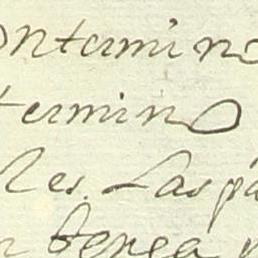 ontermino
termino
les. Las pa
tenga